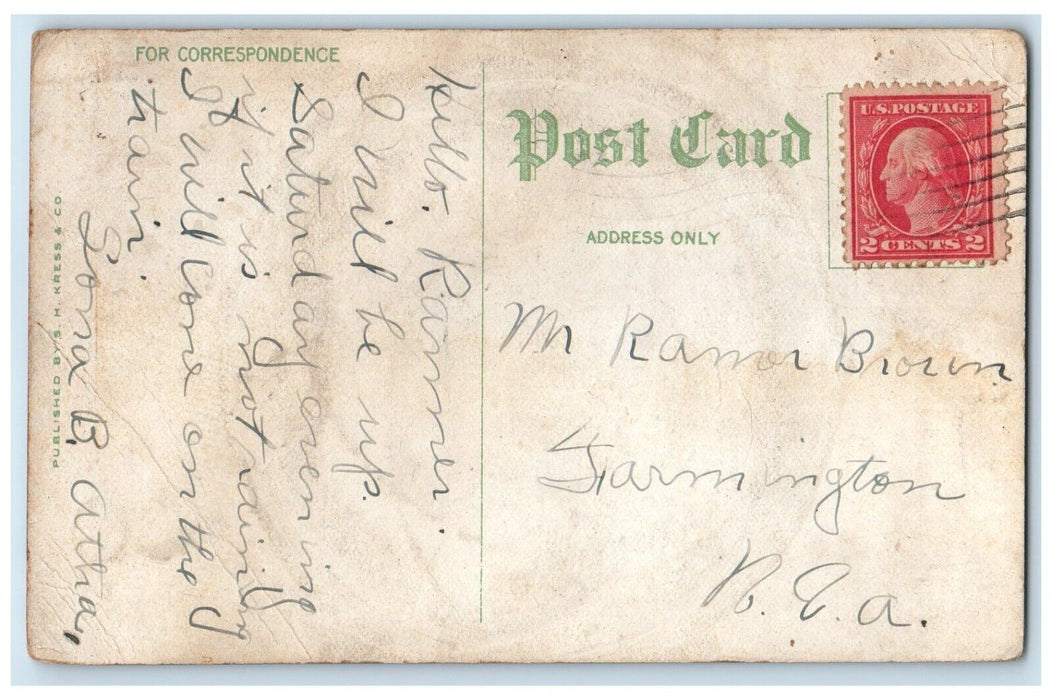 FOR CORRESPONDENCE
Hello. Ranner.
I will be up.
Saturday evening
if it is not raining
I will Come on the
train.
Lona B. Atha,
PUBLISHED BY S. H. KRESS & CO.
Post Card
ADDRESS ONLY
U.S. POSTAGE
2 CENTS 2
Mr Ranor Brown
Farmington
Ga.